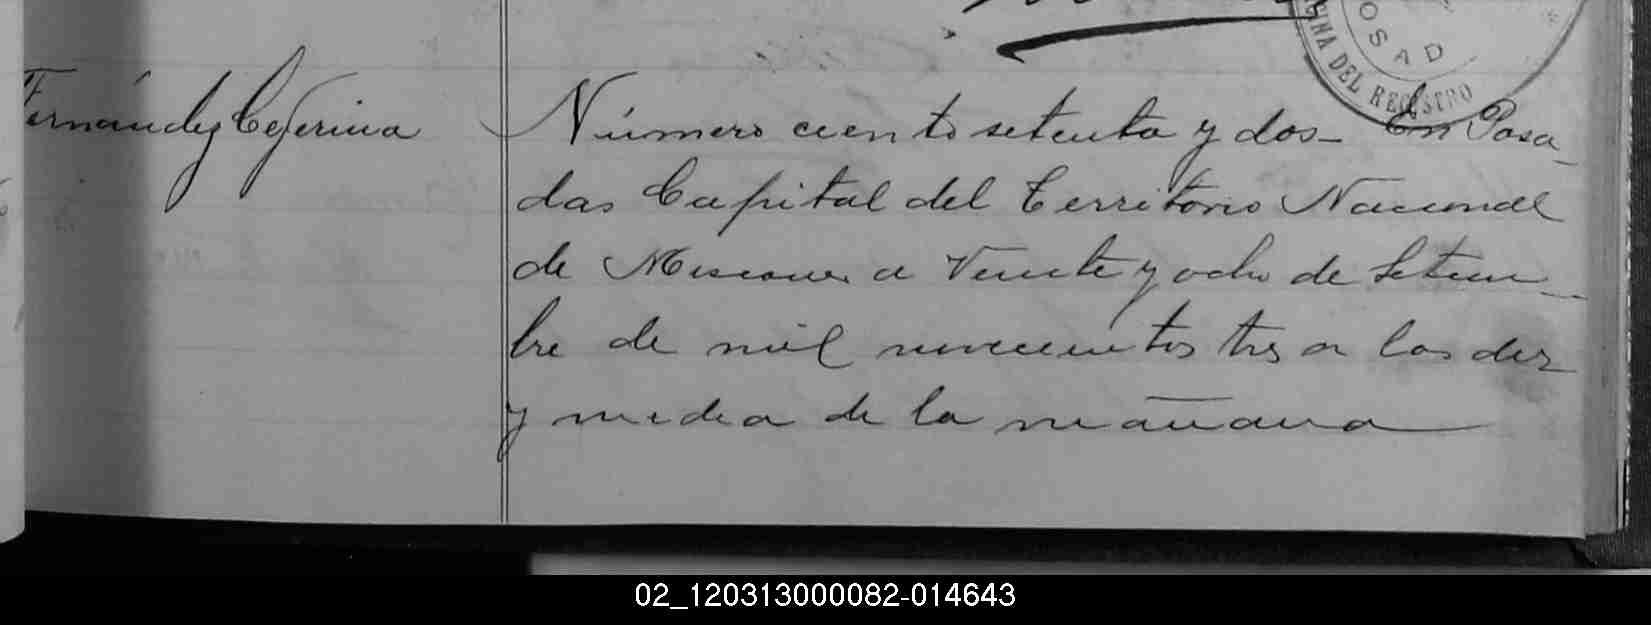 OSAD
INA DEL REGISTRO
Fernández Ceferina
Número ciento setenta y dos_ En Posa_
das Capital del Territorio Nacional
de Misiones a Veinte y ocho de Setiem_
bre de mil novecientos tres a las diez
y media de la mañana
02_120313000082-014643